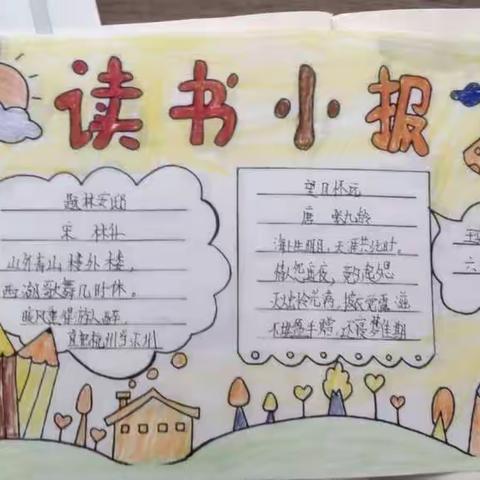 读书小报
题林安邸
宋 林升
山外青山楼外楼，
西湖歌舞几时休。
暖风熏得游人醉
直把杭州当汴州
望月怀远
唐 张九龄
海上生明月，天涯共此时。
情人怨遥夜，竟夕起思
灭烛怜光满，披衣觉露滋
不堪盈手赠，还寝梦佳期
六